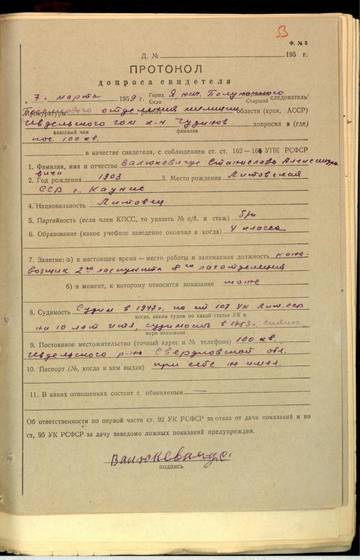 Ф. № 8
Д. № 195 г.
ПРОТОКОЛ
допроса свидетеля
7. марта 1959 г. Город Село Я нач. Полуночного Старший следователь
отделения милиции прокуратуры района области (края, АССР)
Чудинов допросил в (где)
классный чин фамилия
пос. 100 кв.
в качестве свидетеля, с соблюдением ст. ст. 162—168 УПК РСФСР
1. Фамилия, имя и отчество Валюкевичус Станислово Александро
вича
2. Год рождения 1903 3. Место рождения Литовская
ССР г. Каунис
4. Национальность Литовец
5. Партийность (если член КПСС, то указать № п/б. и стаж) б/п
6. Образование (какое учебное заведение окончил и когда) 4 класса
7. Занятие: а) в настоящее время — место работы и занимаемая должность коно-
возщик 2го 8го лаготделения
б) в момент, к которому относится показание тоже
8. Судимость Судим в 1947г. по ст 107 УК Лит.ССР
когда, каким судом по какой статье УК и
на 10 лет судимость в
мера наказания
9. Постоянное местожительство (точный адрес и № телефона) 100 кв.
Ивдельского р-на Свердловской обл.
10. Паспорт (№, когда и кем выдан) при себе не имел.
11. В каких отношениях состоит с обвиняемым
Об ответственности по первой части ст. 92 УК РСФСР за отказ от дачи показаний и по
ст. 95 УК РСФСР за дачу заведомо ложных показаний предупрежден.
Валюкевичус.
подпись